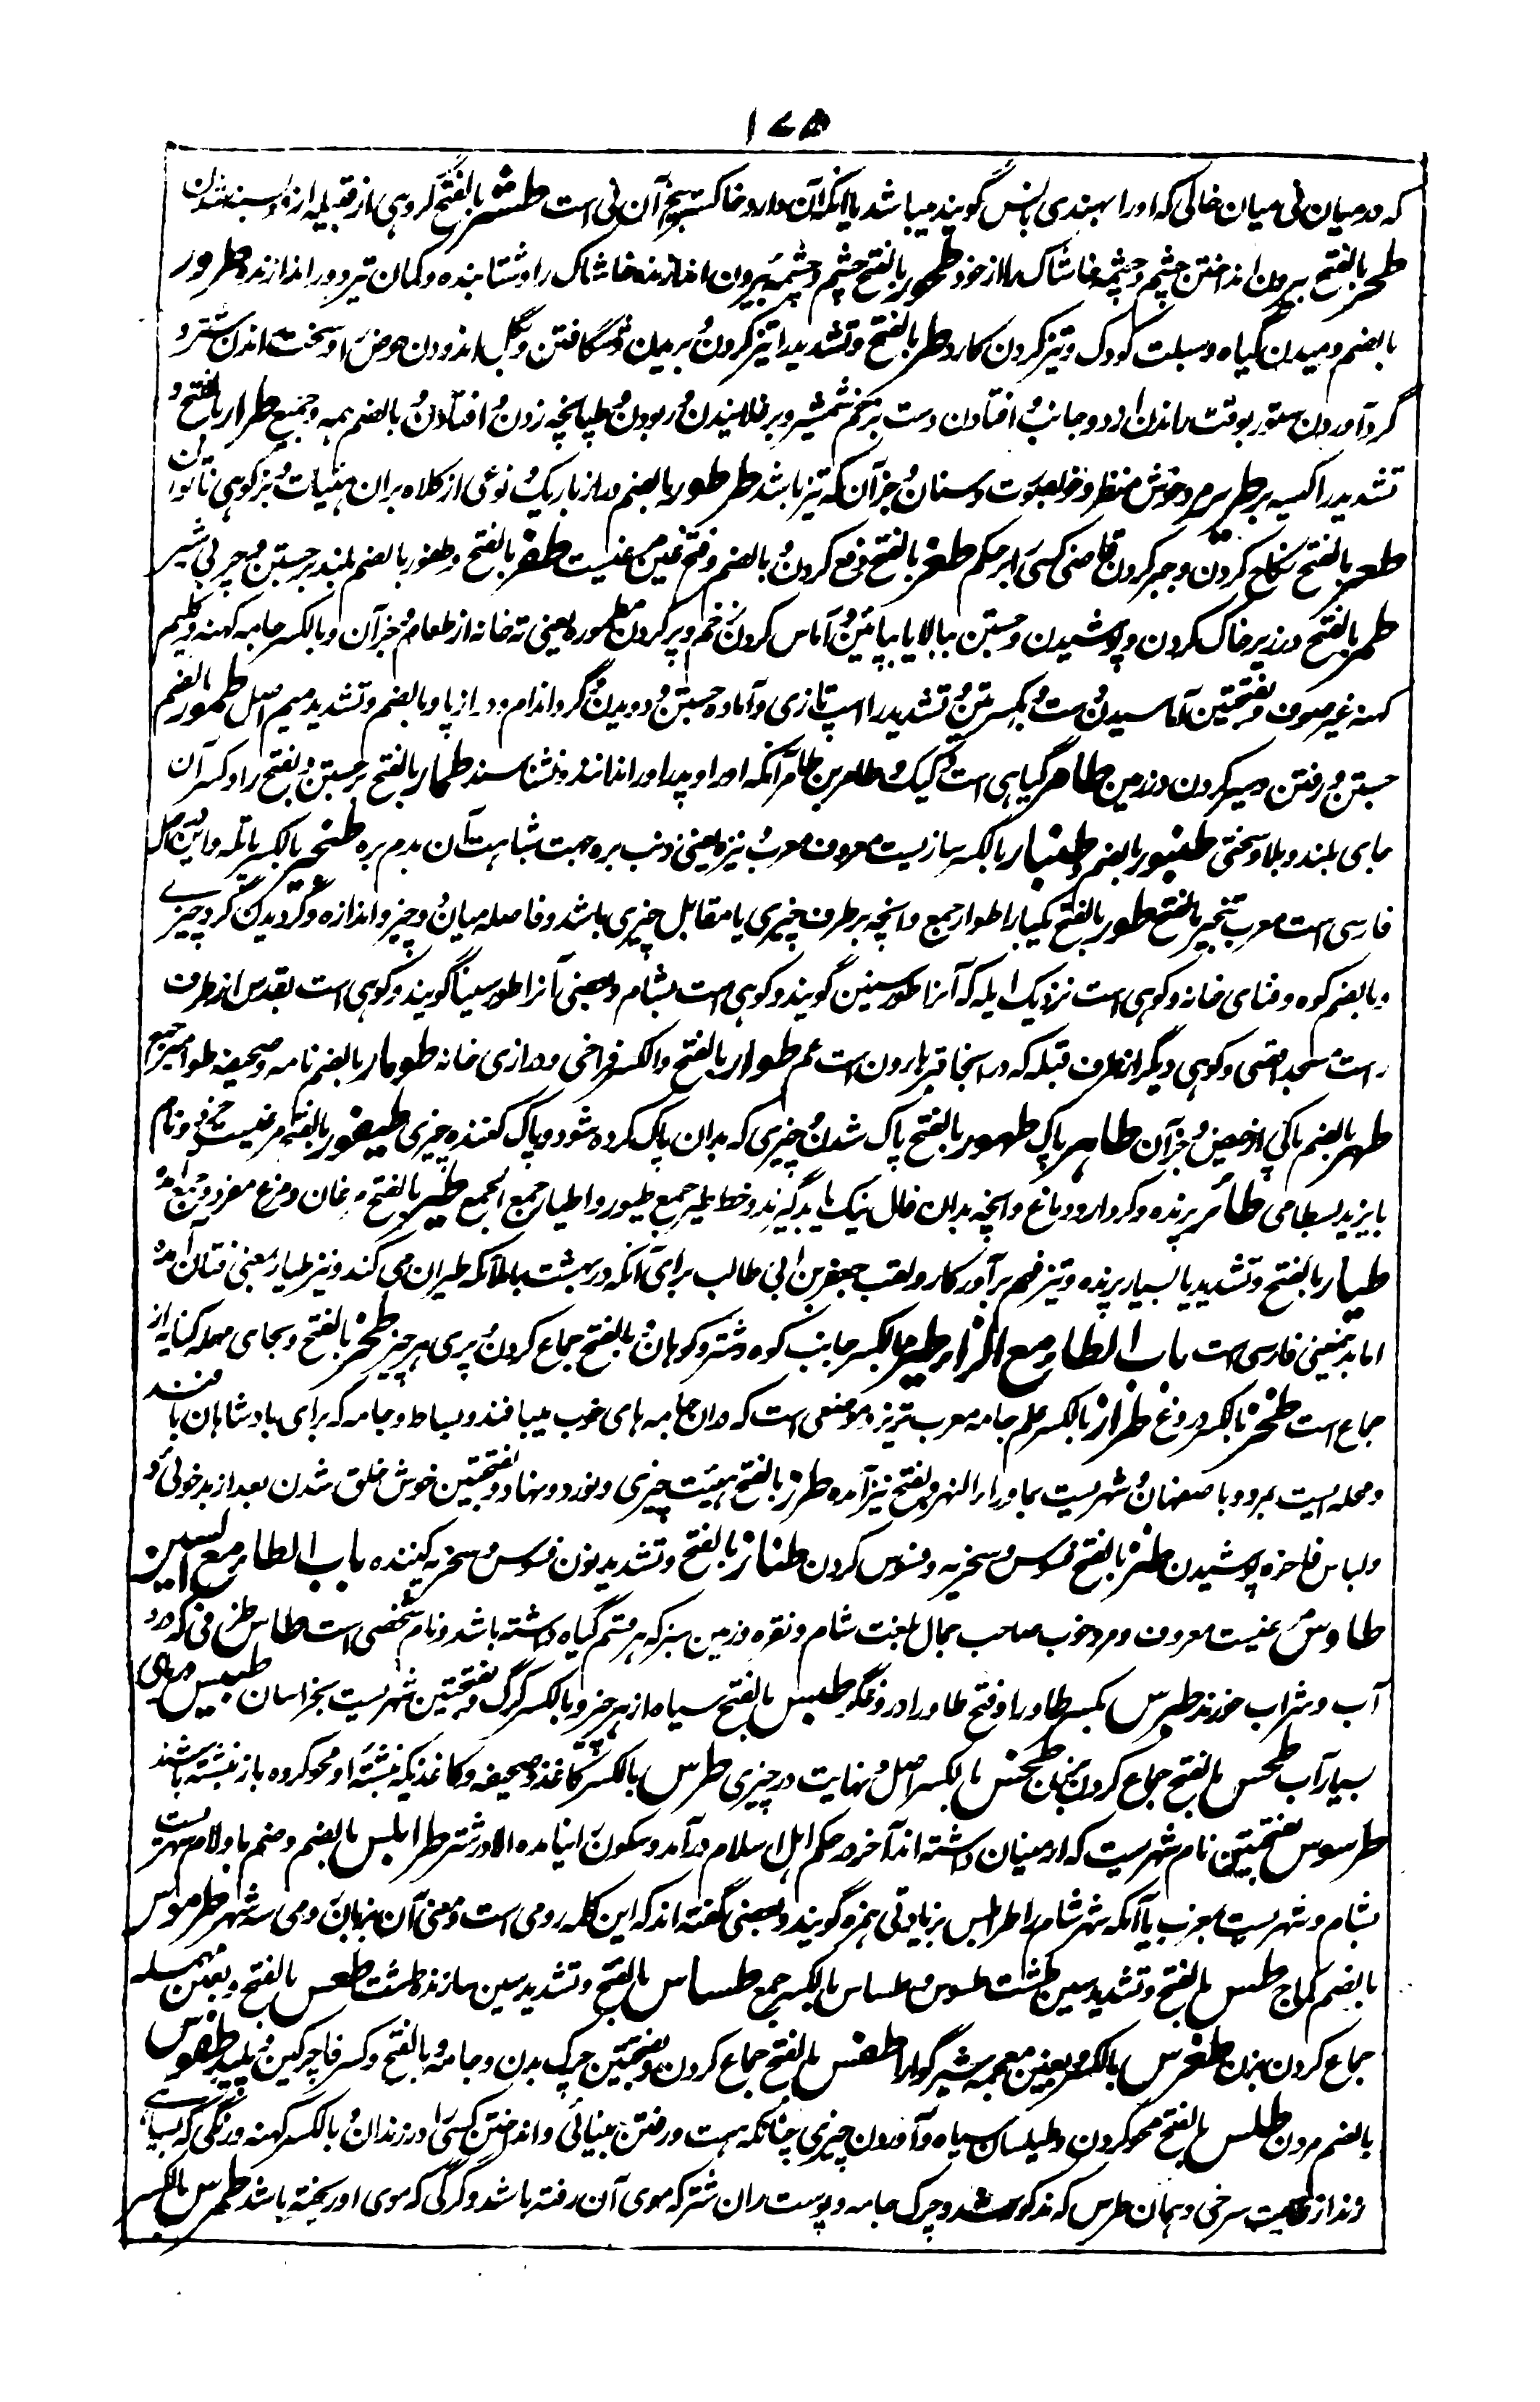 ۱۷۵
که درمیان نی میان خالی که اورا بهندی بانس گویند میباشد یا آنکه آن دارو خاکستر بیخ آن نی است طثر بالفتح گروهی از قبیله ازد
طحر بالفتح بیرون انداختن چشم و چشمه خاشاک را از خود طحور بالفتح چشم و چشمه بیرون اندازنده خاشاک را و شتابنده و کمان تیر دور اندازنده طرور
بالضم دمیدن گیاه و سبلت کودک و تیز کردن کارد طر بالفتح و تشدید را تیز کردن و بریدن و شگافتن و بگل اندودن حوض را و سخت راندن شتر و
گرد آوردن ستور بوقت راندن از دو جانب و افتادن دست بزخم شمشیر و برغلانیدن و ربودن و طپانچه زدن و افتادن و بالضم همه و جمیع طرار بالفتح و
تشدید را کیسه بر طریر مرد خوش منظر و خوبصورت و سنان و جز آن که تیز باشد طرطور بالضم دراز باریک و نوعی از کلاه بران هیئات و بز کوهی ناتوان
طعر بالفتح نکاح کردن و جبر کردن قاضی کسی را بر حکم طغر بالفتح دفع کردن و بالضم و فتح غین مرغیست طفر بالفتح و طفور بالضم بلند برجستن و چربی شیر
طمر بالفتح در زیر خاک کردن و پوشیدن و جستن ببالا یا بپائین و آماس کردن زخم و پر کردن مطموره یعنی ته خانه از طعام و جز آن و بالکسر جامه کهنه و گلیم
کهنه غیر صوف و بفتحتین آماسیدن دست و بکسرتین و تشدید را اسپ تازی و آماده جستن و دویدن و گرد اندام و دراز پا و بالضم و تشدید میم اصل طمور بالضم
جستن و رفتن و سیر کردن در زمین طامر گیاهی است و کیک و طامر بن طامر آنکه او را و پدر او را ندانند و نشناسند طمار بالفتح برجستن و بفتح را و کسر آن
جای بلند و بلا و سختی طنبور بالضم و طنبار بالکسر سازیست معروف معرب دنبره یعنی دنب بره جهت شباهت آن بدم بره طنجیر بالکسر پاتله و این اصل
فارسی است معرب تنجیر بالفتح طور بالفتح یکبار اطوار جمع و آنچه بر طرف چیزی یا مقابل چیزی باشد و فاصله میان دو چیز و اندازه و گردیدن گرد چیزے
و بالضم کوه و فنای خانه و کوهی است نزدیک ایله که آنرا طور سینین گویند و کوهی است بشام و بعضی آنرا طور سینا گویند و کوهی است بقدس از طرف
راست مسجد اقصی و کوهی دیگر از طرف قبله که در اینجا قبر هارون است عم طوار بالفتح و الکسر فراخی و درازی خانه طومار بالضم نامه و صحیفه طوامیر جمع
طهر بالضم پاکی از حیض و جز آن طاهر پاک طهور بالفتح پاک شدن و چیزی که بدان پاک کرده شود و پاک کننده چیزی طیفور بالفتح مرغیست و نام
بایزید بسطامی طائر پرنده و کردار و دماغ و آنچه بدان فال نیک یا بد گیرند و خط طیر جمع طیور و اطیار جمع الجمع طیر بالفتح مرغان و مرغ مفرد و جمع آمده
طیار بالفتح و تشدید یا بسیار پرنده و تیز فهم برآور کار و لقب جعفر بن ابی طالب برای آنکه در بهشت با ملائکه طیران می کند و نیز طیار بمعنی فتان آمده
اما بدینمعنی فارسی است باب الطاء مع الزاء طبز بالکسر جانب کوه و شتر دو کوهان و بالفتح جماع کردن و پری هر چیز طحز بالفتح و بجای مهمله کنایه از
جماع است طخز بالکسر دروغ طراز بالکسر علم جامه معرب تریز و موضعی است که دران جامه های خوب میبافند و بساط و جامه که برای پادشاهان بافند
و محله ایست بمرو و باصفهان و شهریست بماوراء النهر و بفتح نیز آمده طرز بالفتح هیئت چیزی و نورد و نهاد و بفتحتین خوش خلق شدن بعد از بدخوئی و
و لباس فاخره پوشیدن طنز بالفتح فسوس و سخریه و فسوس کردن طناز بالفتح و تشدید نون فسوس و سخریه کننده باب الطاء مع السین
طاوس مرغیست معروف و مرد خوب صاحب جمال بلغت شام و نقره و زمین سبز که هر قسم گیاه داشته باشد و نام شخصی است طاس ظرفی که درو
آب و شراب خورند طبرس بکسر طا و را و فتح طا و را دروغگو طبس بالفتح سیاه از هر چیز و بالکسر گرگ و بفتحتین شهریست بخراسان طبیس دریای
بسیار آب طحس بالفتح جماع کردن بزن طخس بالکسر اصل و نهایت در چیزی طرس بالکسر کاغذ و صحیفه و کاغذیکه نبشته او محو کرده باز نبشته باشند
طرسوس بفتحتین نام شهریست که ارمنیان داشته اند آخر در حکم اهل اسلام درآمد و سکون را نیامده الا در شعر طرابلس بالضم و ضم با و لام شهریست
بشام و شهریست بمغرب یا آنکه شهر شام را اطرابلس بزیادتی همزه گویند و بعضی گفته اند که این کلمه رومی است و معنی آن بزبان رومی سه شهر طرموس
بالضم کماج طس بالفتح و تشدید سین طشت طسوس و طساس بالکسر جمع طساس بالفتح و تشدید سین سازنده طشت طعس بالفتح و بعین مهمله
جماع کردن بزن طغرس بالکسر و بغین معجمه شیر گوارا طفس بالفتح جماع کردن و بفتحتین چرک بدن و جامه و بالفتح و کسر فا چرکین و پلید طفوس
بالضم مردن طلس بالفتح محو کردن و طیلسان سیاه و آوردن چیزی چنانکه هست و رفتن بینائی و انداختن کسی را در زندان و بالکسر کهنه و رنگی که بسیاهے
زند از غایت سرخی و همان طرس که مذکور شد و چرک جامه و پوست ران شتر که موی آن رفته باشد و گرگی که موی او ریخته باشد طمرس بالکسر